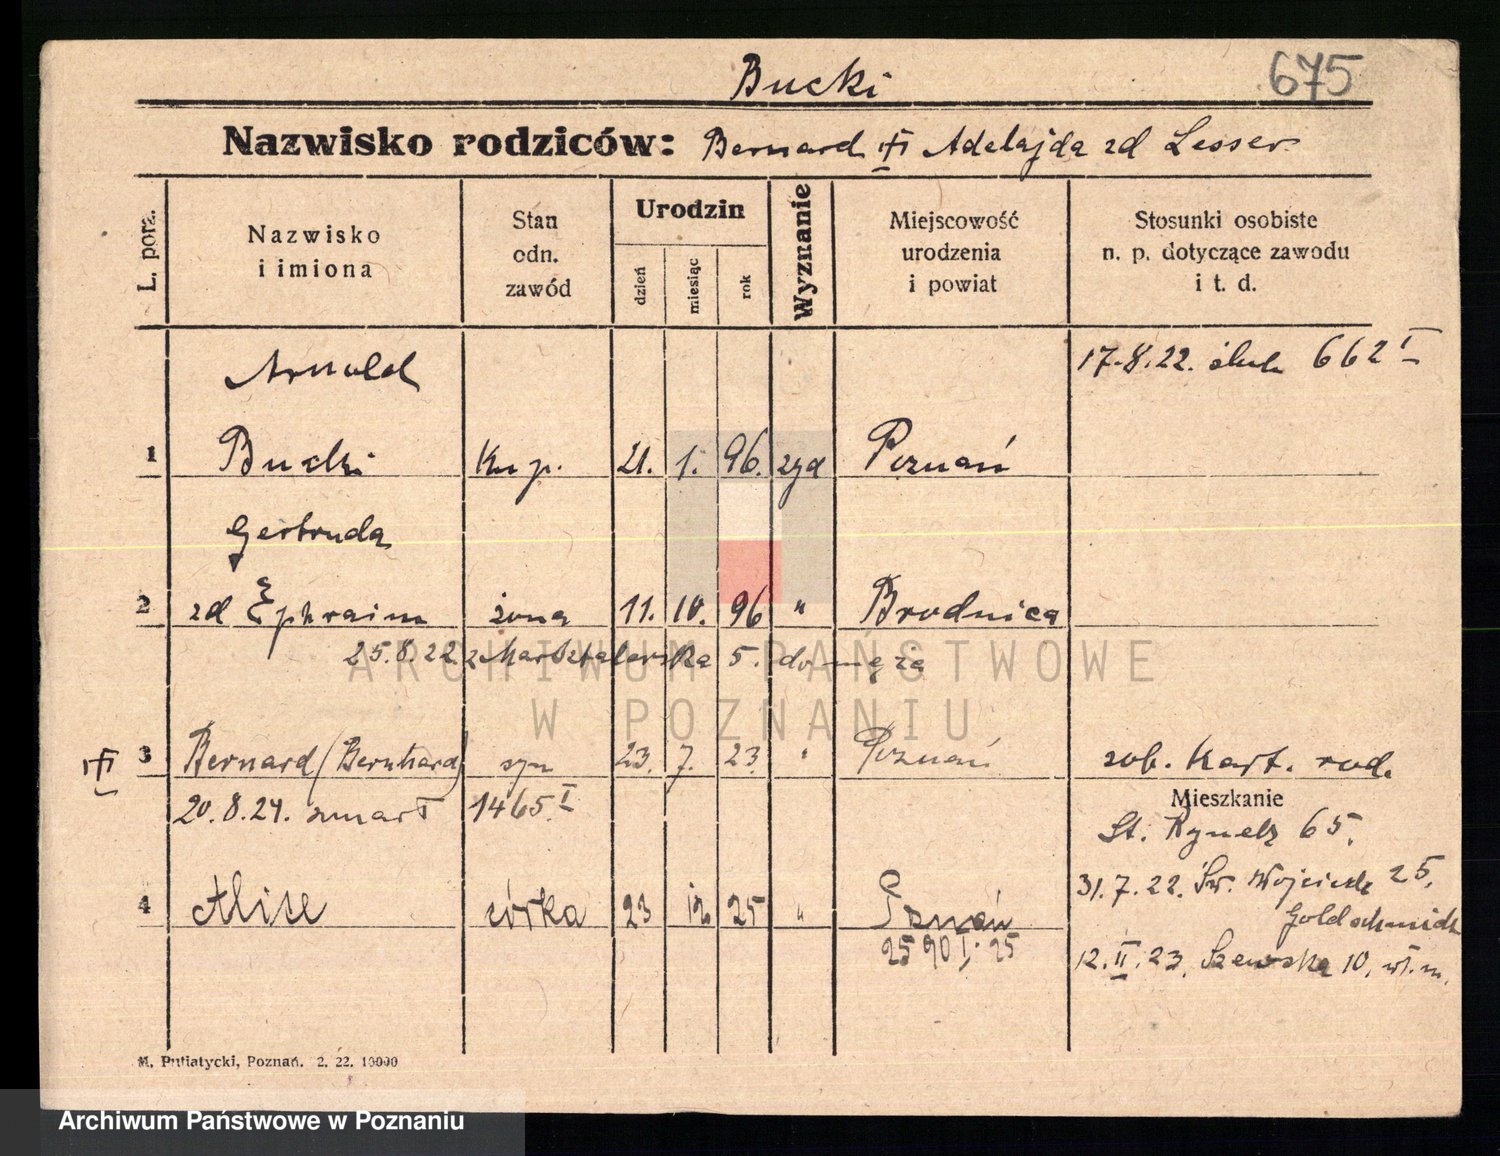 Bucki
675
Nazwisko rodziców: Bernard Adelajda zd Lesser
L. porz.
Nazwisko
i imiona
Stan
odn.
zawód
Urodzin
dzień
miesiąc
rok
Wyznanie
Miejscowość
urodzenia
i powiat
Stosunki osobiste
n. p. dotyczące zawodu
i t. d.
17.8.22. ślub 662 I
Arnold
1 Bucki kup. 21. 1. 96. żyd Poznań
Gertruda
2 zd Ephraim żona 11. 10. 96 " Brodnica
25.8.22 z Marsztalarska 5. do męża
3 Bernard (Bernhard) syn 23. 7. 23. " Poznań zob. kart. rod.
20.8.24. zmarł 1465 I
Mieszkanie
St. Rynek 65.
4 Alice córka 23 12 25 " Poznań
25 90 I. 25
31.7.22. Św. Wojciech 25,
Goldschmidt
12.II.23. Szewska 10, wł. m.
M. Putiatycki, Poznań. 2. 22. 10000
ARCHIWUM PAŃSTWOWE
W POZNANIU
Archiwum Państwowe w Poznaniu